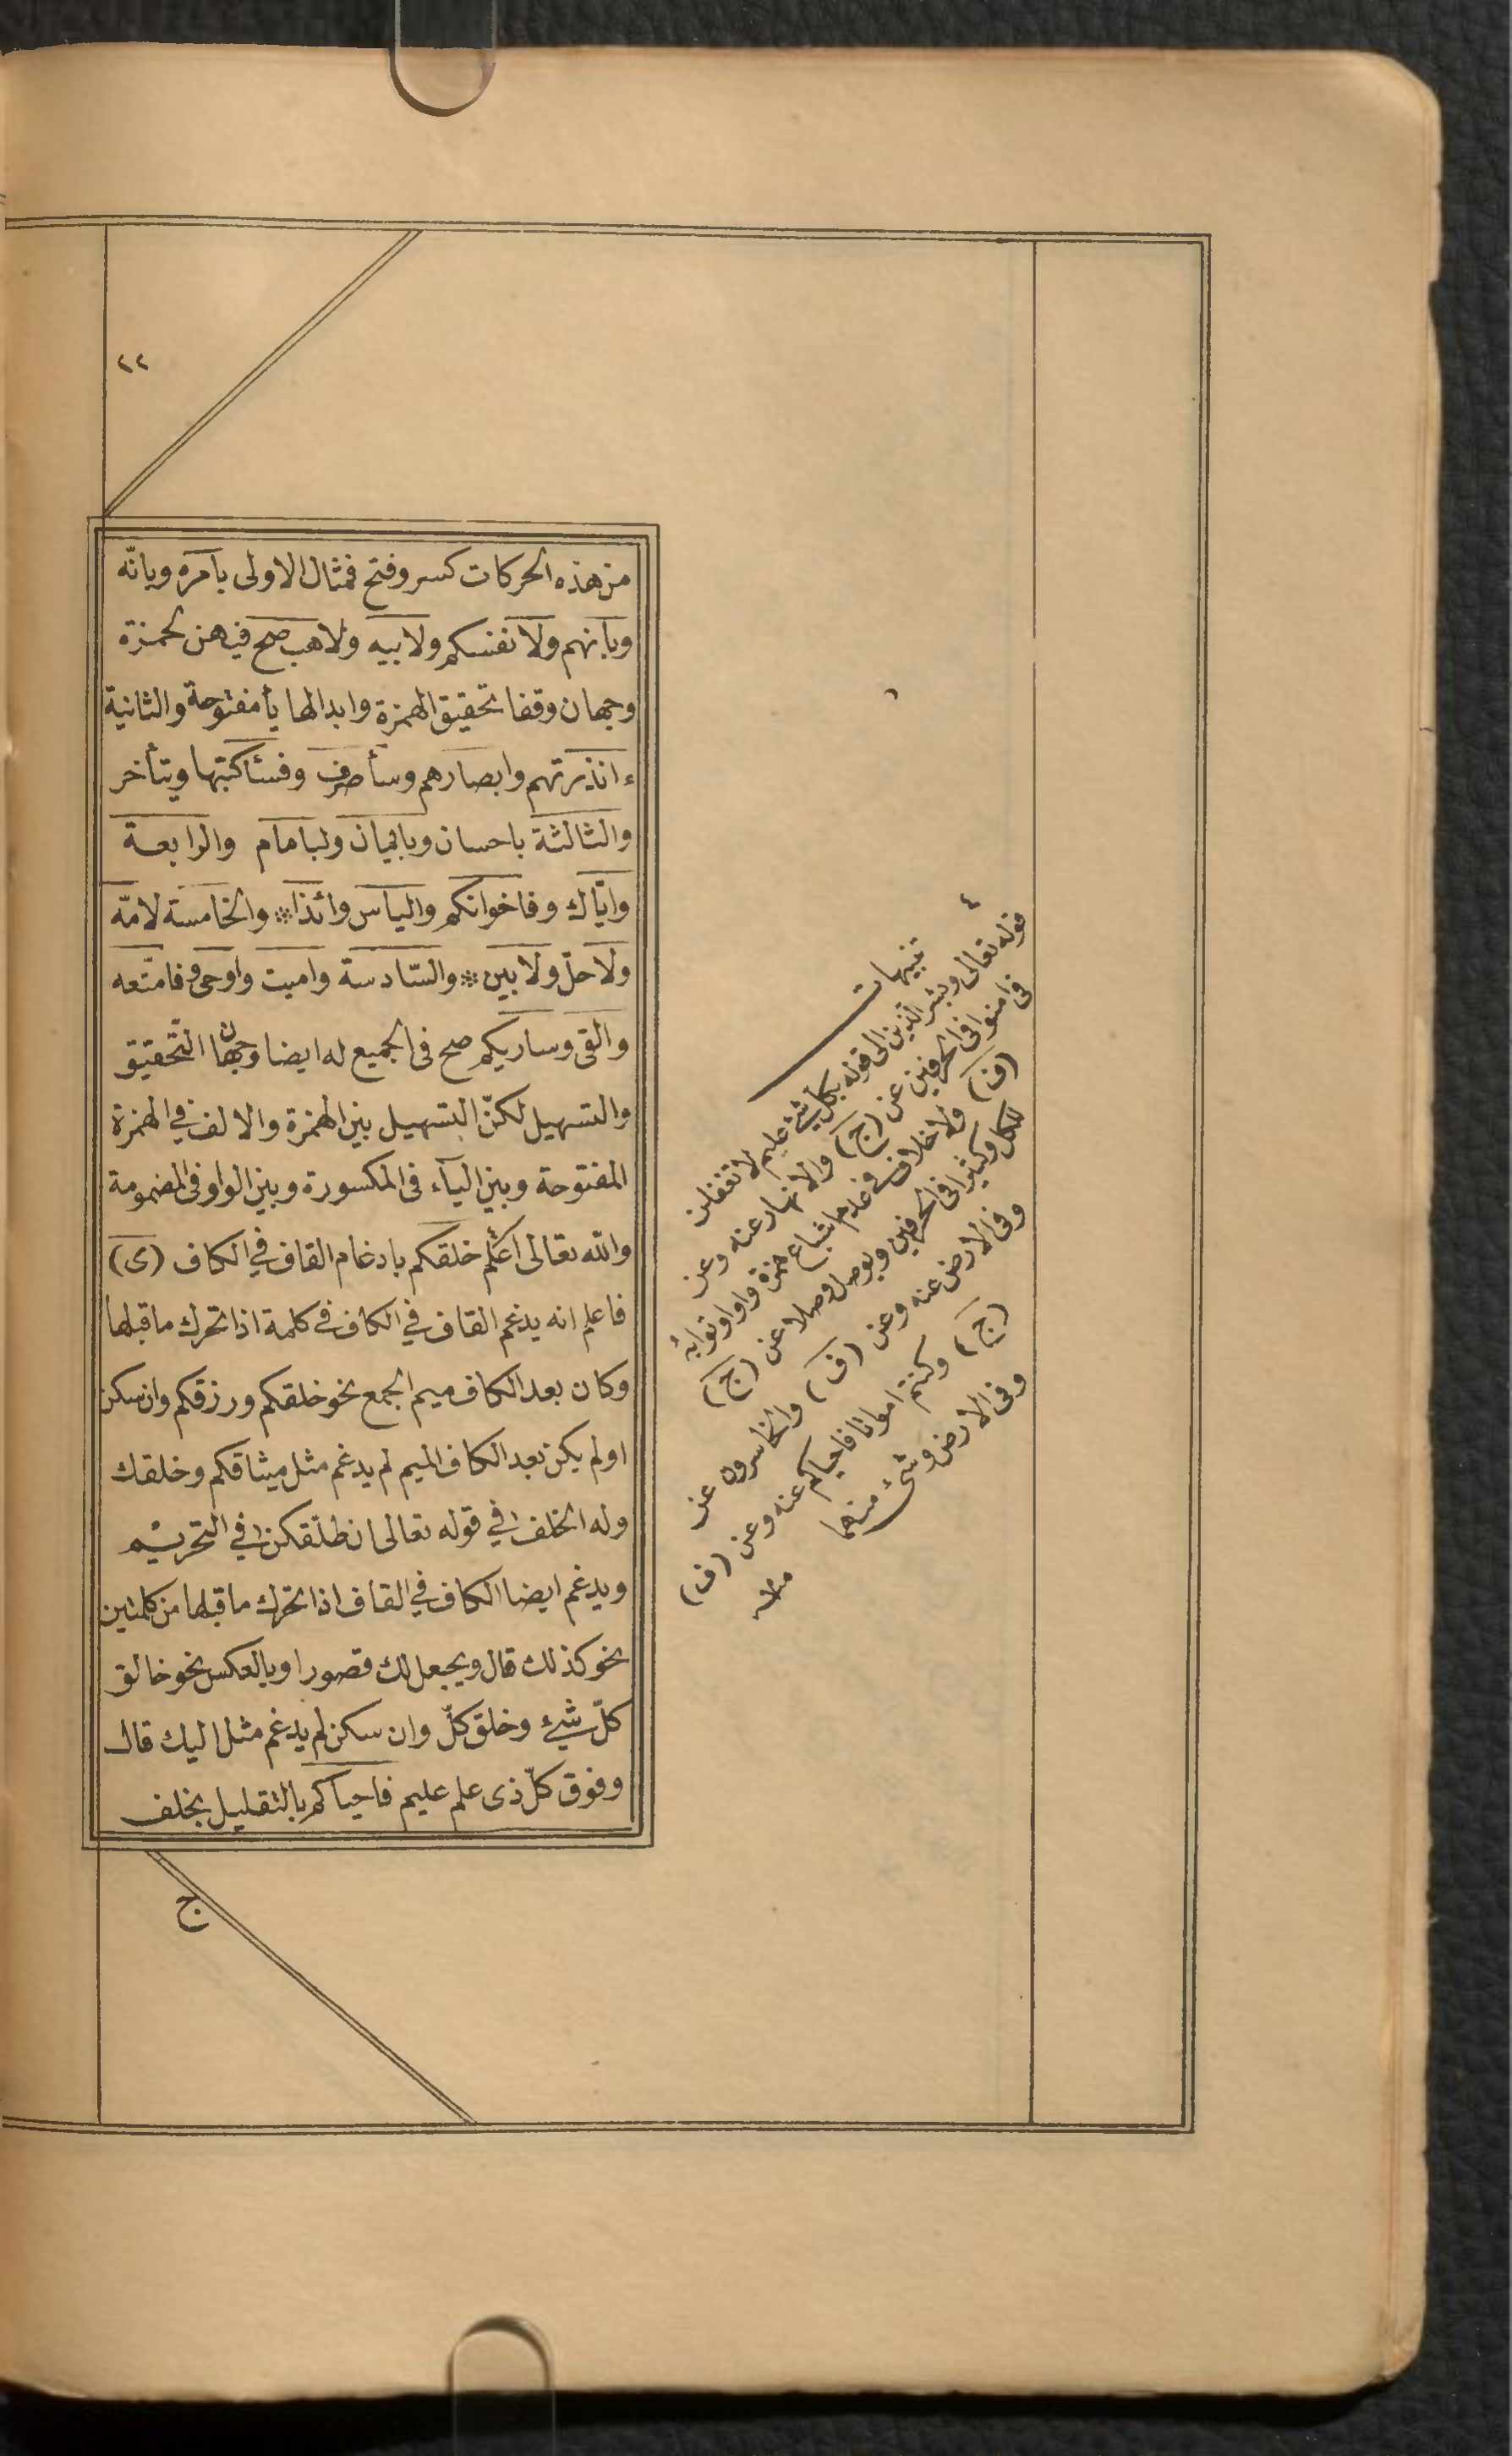 ٢٢
من هذه الحركات كسر وفتح فمثال الاولى بامره وبانّه
وبانهم ولانفسكم ولابيه ولاهب صح فيهن لحمزة
وجهان وقفا تحقيق الهمزة وابدالها يأ مفتوحة والثانية
ءانذرتهم وابصارهم وسأصرف وفسأكتبها ويتأخر
والثالثة باحسان وبايمان ولبامام والرابعة
وايّاك وفاخوانكم والياس وائذا * والخامسة لامّه
ولاحلّ ولابين * والسّادسة واميت واوحى وفامتّعه
والقى وساريكم صح فى الجميع له ايضا وجهان التّحقيق
والتسهيل لكنّ التسهيل بين الهمزة والالف في الهمزة
المفتوحة وبين اليآء فى المكسورة وبين الواو فى المضمومة
والله تعالى اعلم خلقكم بادغام القاف في الكاف (ى)
فاعلم انه يدغم القاف في الكاف فى كلمة اذا تحرك ماقبلها
وكان بعد الكاف ميم الجمع نحو خلقكم ورزقكم وان سكن
اولم يكن بعد الكاف الميم لم يدغم مثل ميثاقكم وخلقك
وله الخلف في قوله تعالى ان طلّقكن في التحريم
ويدغم ايضا الكاف في القاف اذا تحرك ماقبلها من كلمتين
نحو كذلك قال ويجعل لك قصورا وبالعكس نحو خالق
كلّ شئ وخلق كلّ وان سكن لم يدغم مثل اليك قال
وفوق كلّ ذى علم عليم فاحياكم بالتقليل بخلف
ج
٤
تنبيهات
قوله تعالى وبشر الذين الى قوله بكل شئ عليم لاتغفلن
فى امنوا فى الحرفين عن (ج) والانهار عنه وعن
(ف) ولا خلاف فى عدم اشباع همزة واواو توائه
للكل وكثيرا فى الحرفين وبوصل وصلا عن (ج)
وفى الارض عنه وعن (ف) والخاسرون عن
(ج) وكنتم امواتا فاحياكم عنه وعن (ف)
وفى الارض وشئ منهما
منه